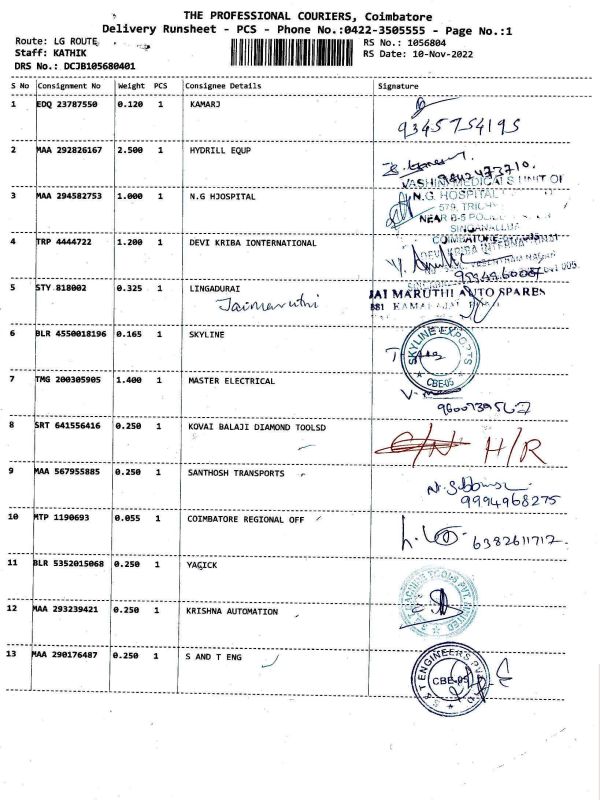 THE PROFESSIONAL COURIERS, Coimbatore
Delivery Runsheet - PCS - Phone No.:0422-3505555 - Page No.:1
Route: LG ROUTE
Staff: KATHIK
DRS No.: DCJB105680401
RS No.: 1056804
RS Date: 10-Nov-2022
S No Consignment No Weight PCS Consignee Details Signature
1 EDQ 23787550 0.120 1 KAMARJ
9345754195
2 MAA 292826167 2.500 1 HYDRILL EQUP
9842473710.
VASHINI MEDICALS UNIT OF
3 MAA 294582753 1.000 1 N.G HJOSPITAL
N.G. HOSPITAL
579, TRICHY
NEAR B-5 POLICE
SINGANALLUR
4 TRP 4444722 1.200 1 DEVI KRIBA IONTERNATIONAL
COIMBATORE
5 STY 818002 0.325 1 LINGADURAI
Jaimaruthi
JAI MARUTHI AUTO SPARES
881 KAMARAJAR ROAD
6 BLR 4550018196 0.165 1 SKYLINE
SKYLINE EXPORTS
CBE-05
7 TMG 200305905 1.400 1 MASTER ELECTRICAL
8 SRT 641556416 0.250 1 KOVAI BALAJI DIAMOND TOOLSD
C/N H/R
9 MAA 567955885 0.250 1 SANTHOSH TRANSPORTS
9994968275
10 MTP 1190693 0.055 1 COIMBATORE REGIONAL OFF
6382611712.
11 BLR 5352015068 0.250 1 YAGICK
12 MAA 293239421 0.250 1 KRISHNA AUTOMATION
13 MAA 290176487 0.250 1 S AND T ENG
S & T ENGINEERS PVT LTD
CBE-05